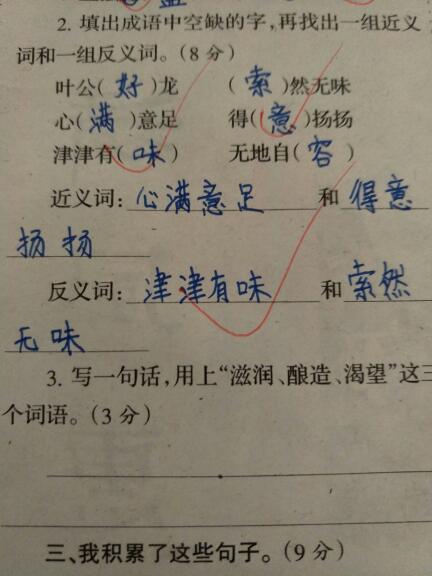 2. 填出成语中空缺的字,再找出一组近义
词和一组反义词。(8分)
叶公(好)龙 (索)然无味
心(满)意足 得(意)扬扬
津津有(味) 无地自(容)
近义词:心满意足和得意
扬扬
反义词:津津有味和索然
无味
3. 写一句话,用上“滋润、酿造、渴望”这三
个词语。(3分)
三、我积累了这些句子。(9分)